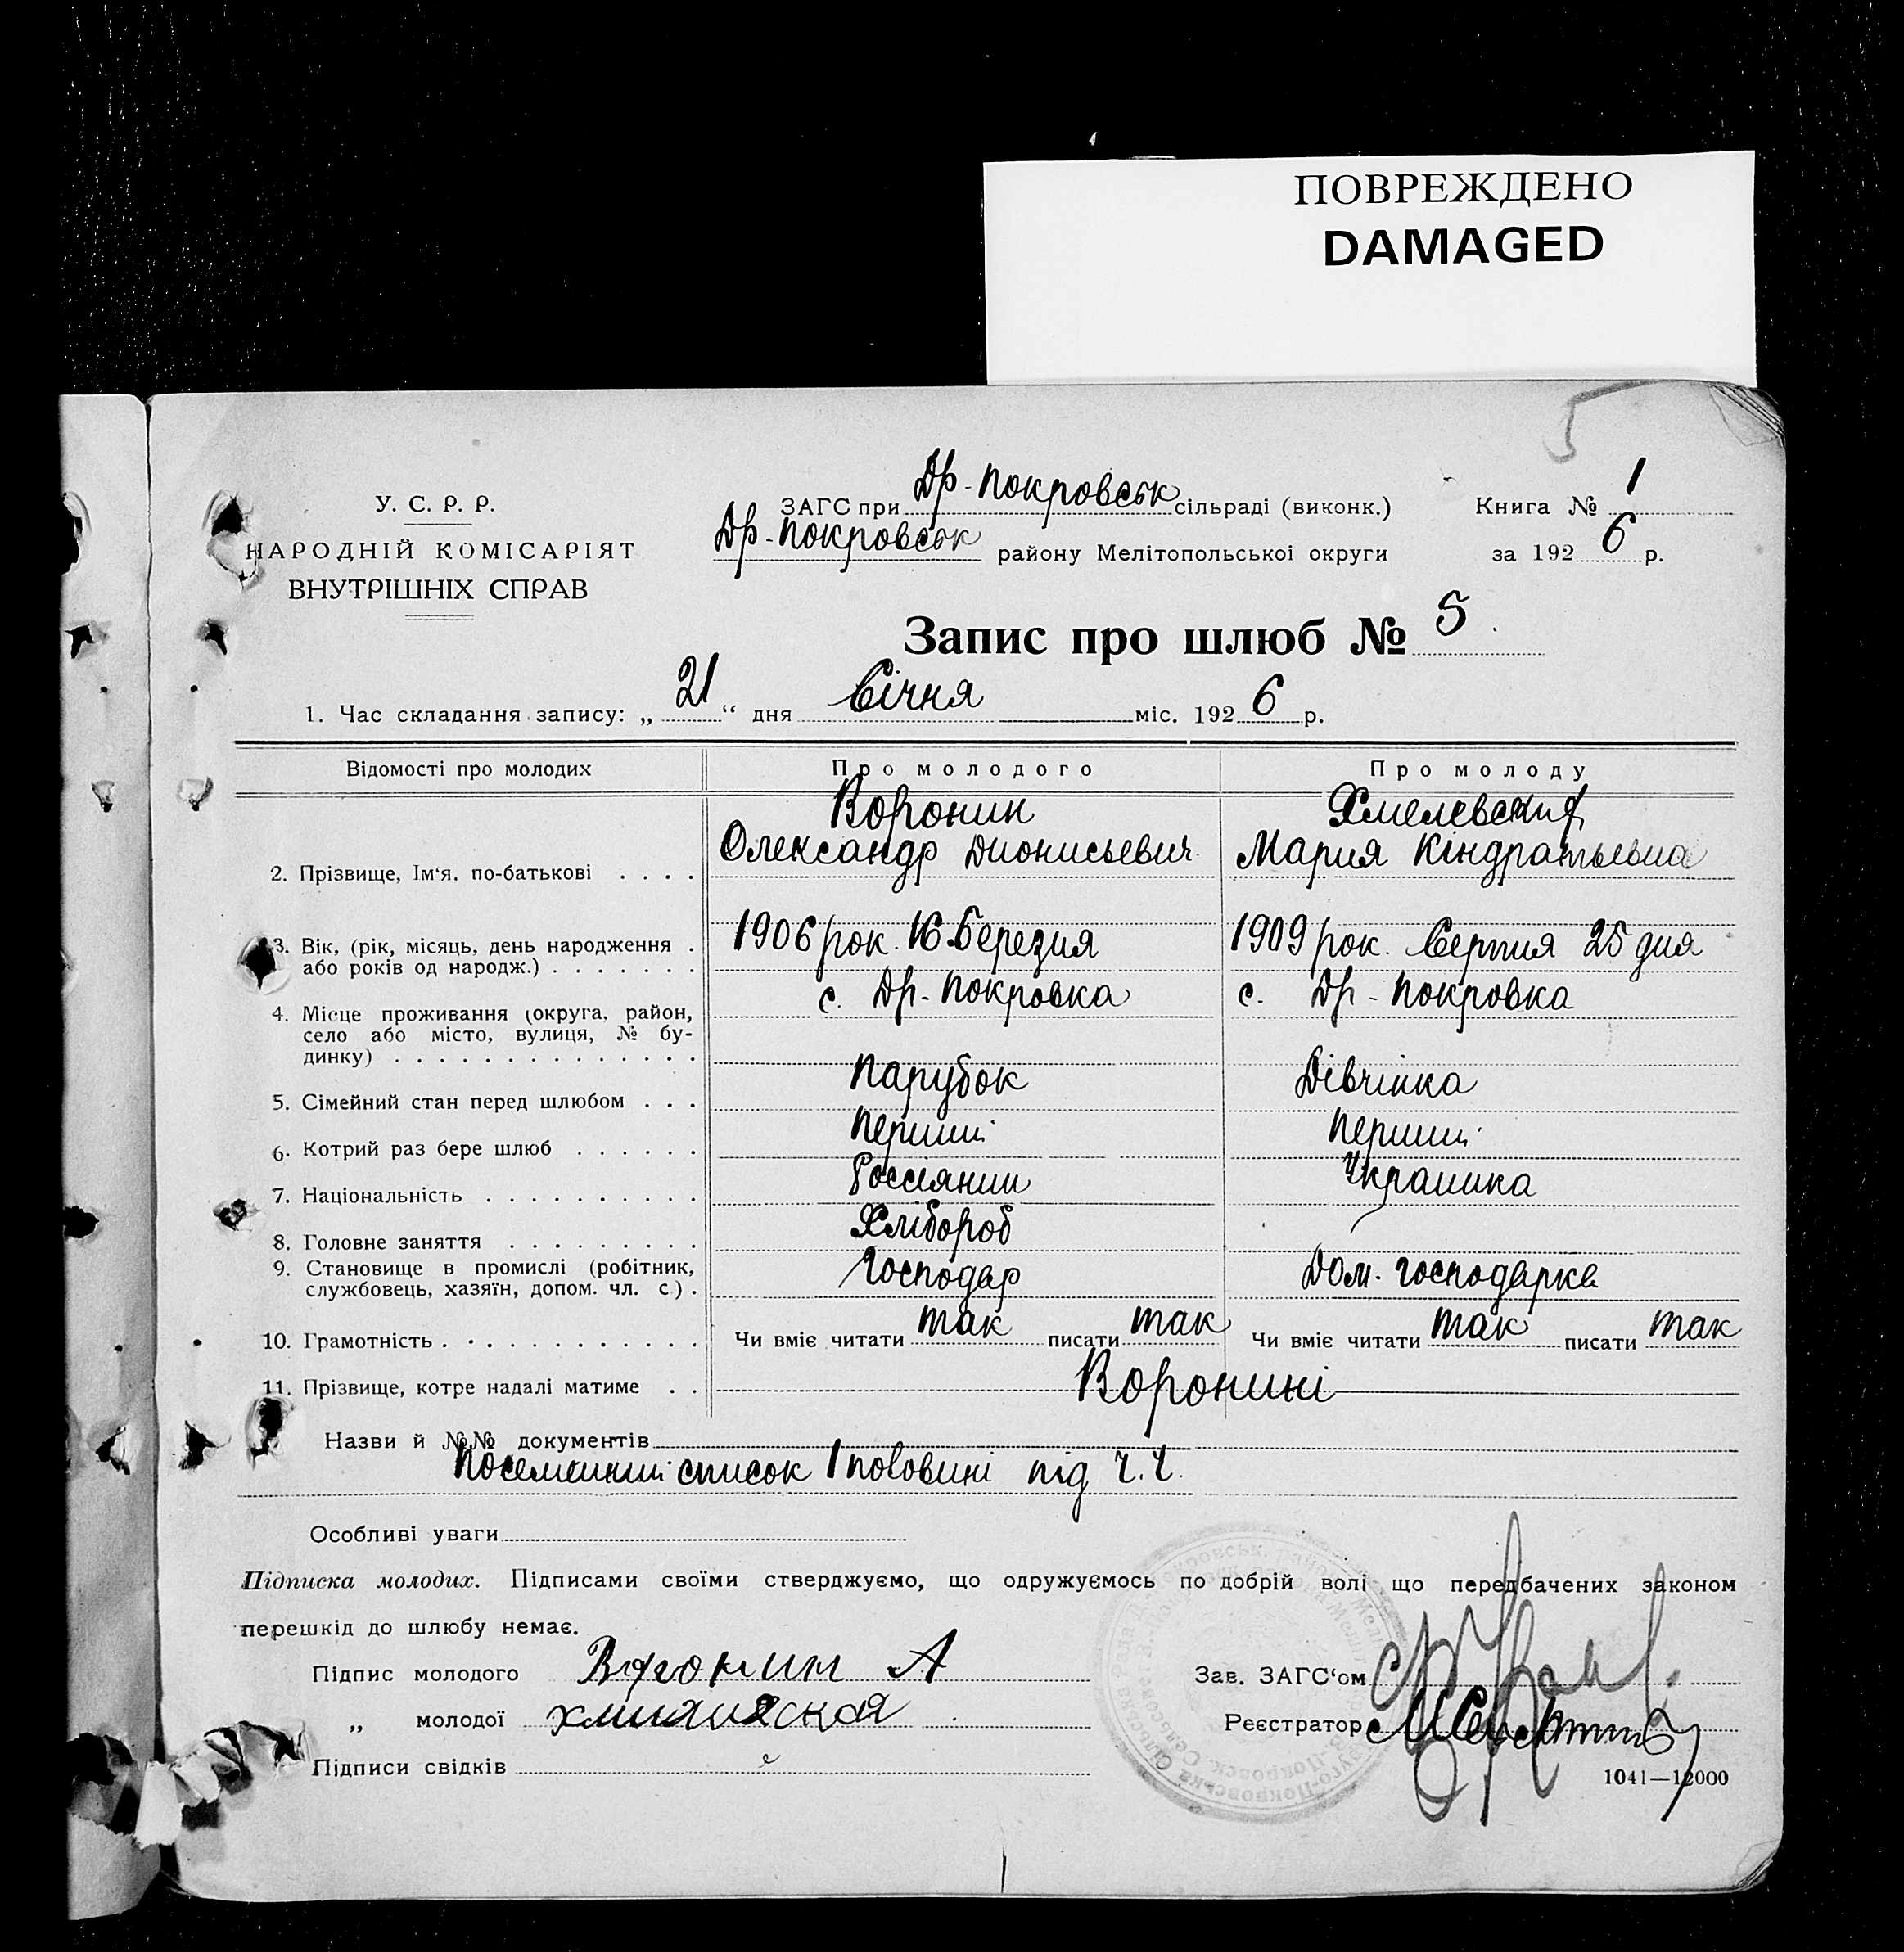 ПОВРЕЖДЕНО
DAMAGED
5
У. С. Р. Р.
НАРОДНІЙ КОМІСАРІЯТ
ВНУТРІШНІХ СПРАВ
ЗАГС при Др-Покровськ сільраді (виконк.)
Др-Покровськ району Мелітопольської округи
Книга № 1
за 1926 р.
Запис про шлюб № 5.
1. Час складання запису: „21“ дня Січня міс. 1926 р.
Відомості про молодих Про молодого Про молоду
Воронин Хмелевская
2. Прізвище, Ім‘я, по-батькові . . . . Олександр Дионисьевич Мария Кіндратьевна
3. Вік, (рік, місяць, день народження . 1906 рок. 16 Березня 1909 рок. Серпня 25 дня
або років од народж.) . . . . . . .
с. Др-Покровка с. Др-Покровка
4. Місце проживання (округа, район,
село або місто, вулиця, № бу-
динку) . . . . . . . . . . . . . .
5. Сімейний стан перед шлюбом . . . Парубок Дівчінка
6. Котрий раз бере шлюб . . . . . . Перший Перший
7. Національність . . . . . . . . . . Россіянин Украинка
8. Головне заняття . . . . . . . . . Хлібороб
9. Становище в промислі (робітник, Господар Дом. господарка
службовець, хазяїн, допом. чл. с.) .
10. Грамотність . . . . . . . . . . . Чи вміє читати так писати так Чи вміє читати так писати так
11. Прізвище, котре надалі матиме . . Воронині
Назви й №№ документів
Посемейний список 1 половині під ч. 4.
Особливі уваги
Підписка молодих. Підписами своїми стверджуємо, що одружуємось по добрій волі що передбачених законом
перешкід до шлюбу немає.
Підпис молодого Воронин А
„ молодої
Підписи свідків
Зав. ЗАГС‘ом
Реєстратор
1041—12000